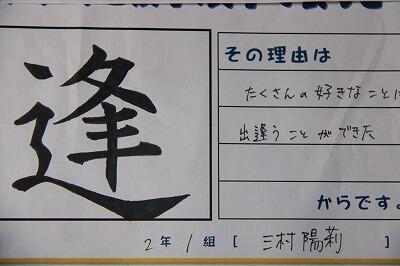 逢
その理由は
たくさんの好きなことに
出逢うことができた
からです。
2年1組[三村陽莉]